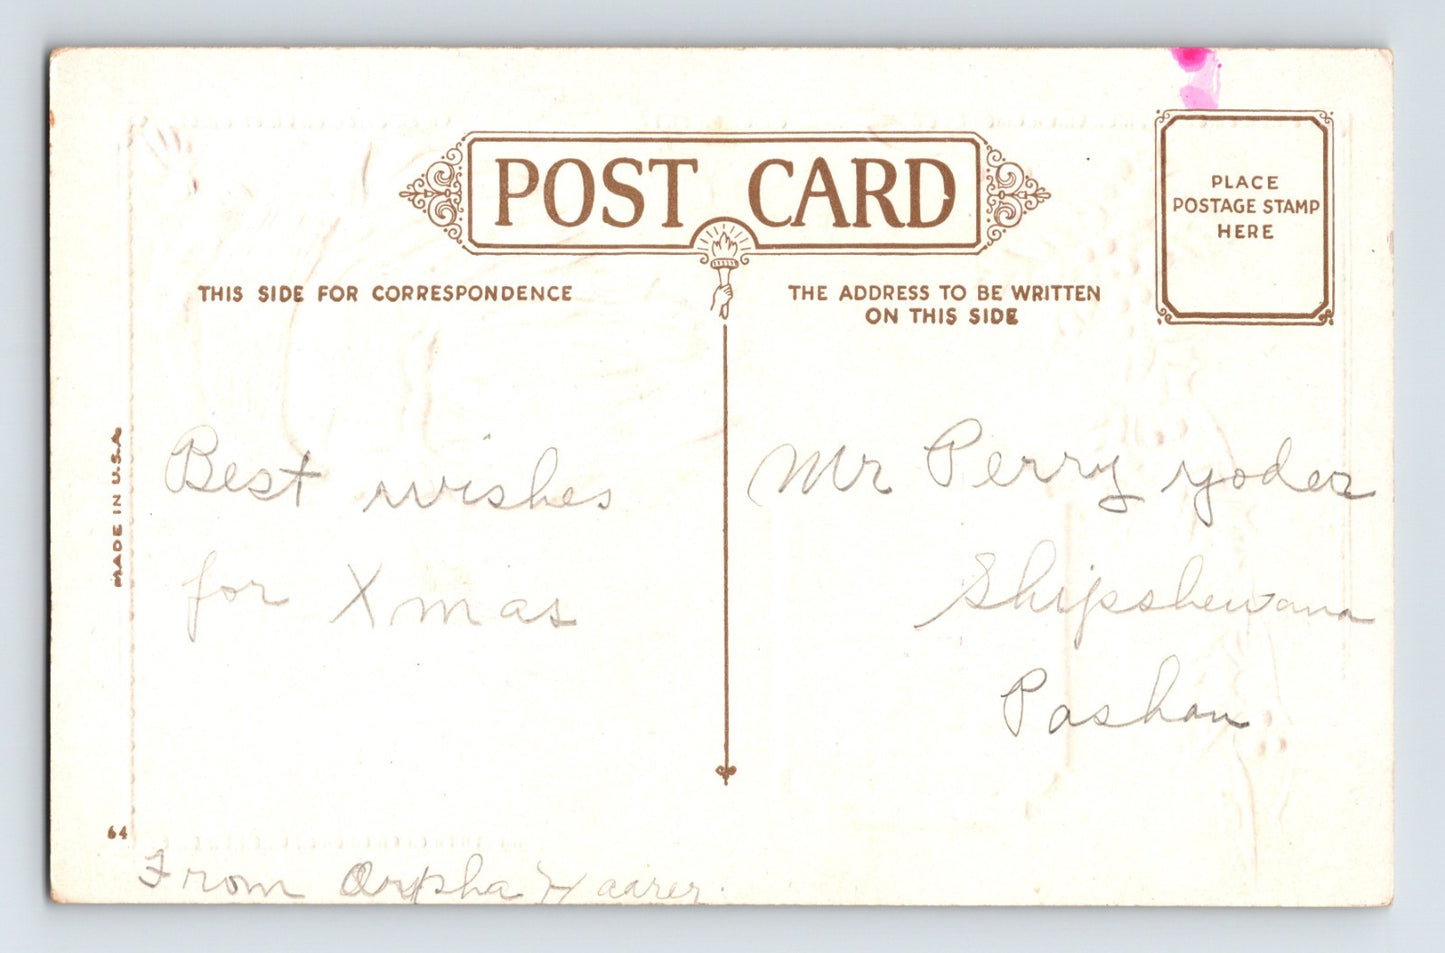 POST CARD
PLACE
POSTAGE STAMP
HERE
THIS SIDE FOR CORRESPONDENCE
THE ADDRESS TO BE WRITTEN
ON THIS SIDE
MADE IN U.S.A
Best wishes
for Xmas
Mr Perry yoder
Shipshewana
Pashan
64
From Orpha Haarer.